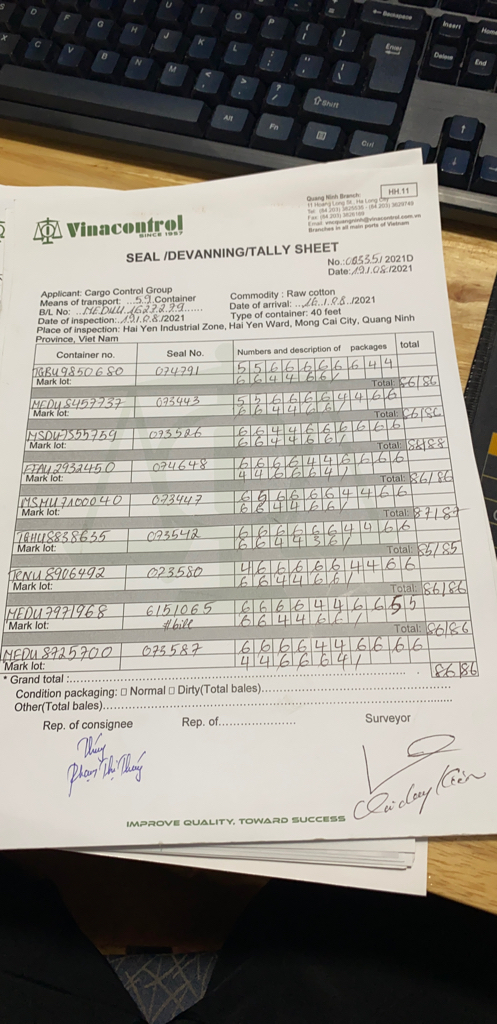 Backspace
Insert
Home
Enter
Delete
End
Shift
Alt
Fn
Ctrl
HH.11
Quang Ninh Branch:
11 Hoang Long St., Ha Long City
Branches in all main ports of Vietnam
Vinacontrol
SINCE 1957
SEAL /DEVANNING/TALLY SHEET
No.: /2021D
Date: 19/.08./2021
Applicant: Cargo Control Group
Commodity : Raw cotton
Means of transport: ...59 Container
Date of arrival: ...16../.08../2021
B/L No: ...MEDUU1627279
Type of container: 40 feet
Date of inspection: .19/.0.8./2021
Place of inspection: Hai Yen Industrial Zone, Hai Yen Ward, Mong Cai City, Quang Ninh
Province, Viet Nam
Container no. Seal No. Numbers and description of packages total
TGBU9850680 074791 5 5 6 6 6 6 6 6 4 4
Mark lot: 6 6 4 4 6 6/
Total: 86/86
MEDU8457737 073443 5 5 6 6 6 6 4 4 6 6
Mark lot: 6 6 4 4 6 6/
Total: 86/86
073526 6 6 4 4 6 6 6 6 6 6
Mark lot: 6 6 4 4 6 6/
Total: 88/88
074648 6 6 6 6 4 4 6 6 6 6
Mark lot: 4 4 6 6 6 4/
Total: 86/86
MSMU7100040 073447 6 5 6 6 6 6 4 4 6 6
Mark lot: 6 6 4 4 6 6/
Total: 87/87
TGHU8838635 073542 6 6 6 6 6 6 4 4 6 6
Mark lot: 6 6 4 4 3 6/
Total: 85/85
TCNU8906492 023580 4 6 6 6 6 6 4 4 6 6
Mark lot: 6 6 4 4 6 6/
Total: 86/86
MEDU7971968 6151065 6 6 6 6 4 4 6 6 5 5
Mark lot: #bill 6 6 4 4 6 6/
Total: 86/86
MEDU8725700 073587 6 6 6 6 4 4 6 6 6 6
Mark lot: 4 4 6 6 6 4/
86/86
* Grand total :
Condition packaging: □ Normal □ Dirty(Total bales)
Other(Total bales)
Rep. of consignee Rep. of Surveyor
Thúy
Phạm Thị Thúy
IMPROVE QUALITY, TOWARD SUCCESS